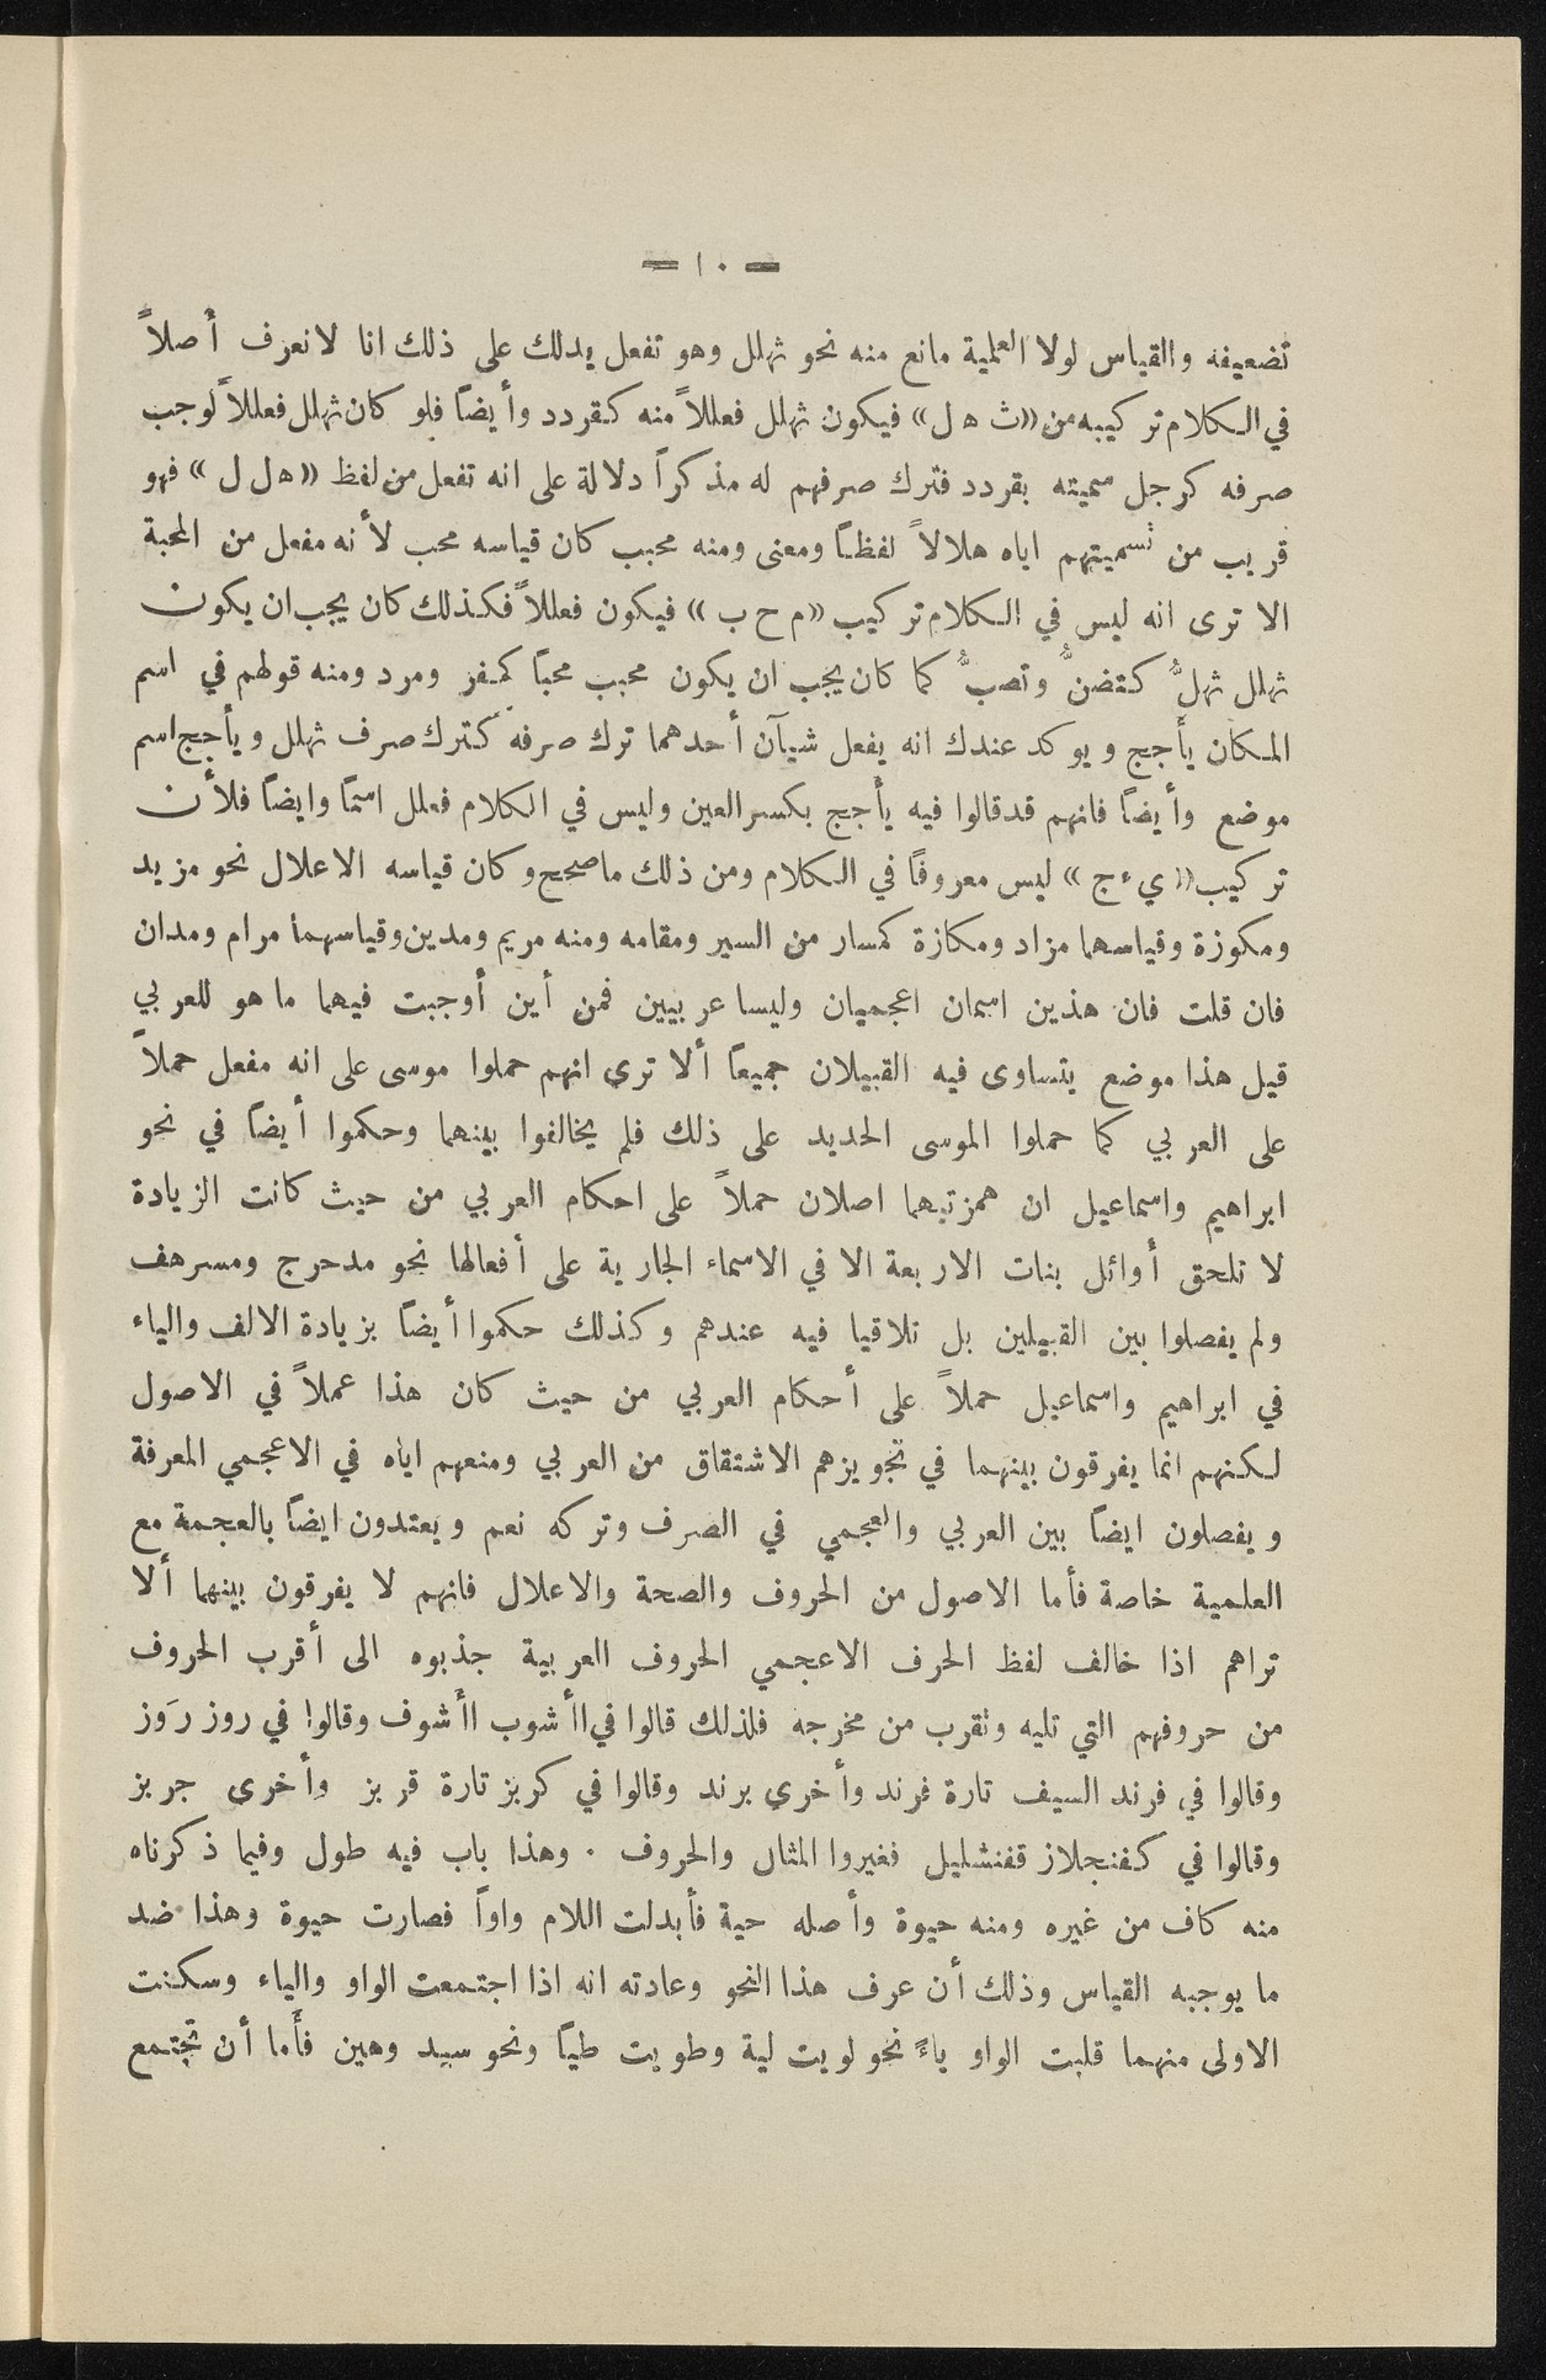 — ١٠ —
تضعيفه والقياس لولا العلمية مانع منه نحو ثهلل وهو تفعل يدلك على ذلك انا لانعرف أصلاً
في الكلام تركيبه من «ث ه ل» فيكون ثهلل فعللاً منه كقردد وأيضاً فلو كان ثهلل فعللاً لوجب
صرفه كرجل سميته بقردد فترك صرفهم له مذكراً دلالة على انه تفعل من لفظ «ه ل ل» فهو
قريب من تسميتهم اياه هلالاً لفظاً ومعنى ومنه محبب كان قياسه محب لأنه مفعل من المحبة
الا ترى انه ليس في الكلام تركيب «م ح ب» فيكون فعللاً فكذلك كان يجب ان يكون
ثهلل ثهلُّ كتضنُّ وتصبُّ كما كان يجب ان يكون محبب محباً كمفر ومرد ومنه قولهم في اسم
المكان يأجج ويوكد عندك انه يفعل شيآن أحدهما ترك صرفه كترك صرف ثهلل ويأجج اسم
موضع وأيضاً فانهم قد قالوا فيه يأجج بكسر العين وليس في الكلام فعلل اسماً وايضاً فلأن
تركيب «ي ء ج» ليس معروفاً في الكلام ومن ذلك ما صحح وكان قياسه الاعلال نحو مزيد
ومكوزة وقياسهما مزاد ومكازة كمسار من السير ومقامه ومنه مريم ومدين وقياسهما مرام ومدان
فان قلت فان هذين اسمان اعجميان وليسا عربيين فمن أين أوجبت فيهما ما هو للعربي
قيل هذا موضع يتساوى فيه القبيلان جميعاً ألا تري انهم حملوا موسى على انه مفعل حملاً
على العربي كما حملوا الموسى الحديد على ذلك فلم يخالفوا بينهما وحكموا أيضاً في نحو
ابراهيم واسماعيل ان همزتيهما اصلان حملاً على احكام العربي من حيث كانت الزيادة
لا تلحق أوائل بنات الاربعة الا في الاسماء الجارية على أفعالها نحو مدحرج ومسرهف
ولم يفصلوا بين القبيلين بل تلاقيا فيه عندهم وكذلك حكموا أيضاً بزيادة الالف والياء
في ابراهيم واسماعيل حملاً على أحكام العربي من حيث كان هذا عملاً في الاصول
لكنهم انما يفرقون بينهما في تجويزهم الاشتقاق من العربي ومنعهم اياه في الاعجمي المعرفة
ويفصلون ايضاً بين العربي والعجمي في الصرف وتركه نعم ويعتدون ايضاً بالعجمة مع
العلمية خاصة فأما الاصول من الحروف والصحة والاعلال فانهم لا يفرقون بينهما ألا
تراهم اذا خالف لفظ الحرف الاعجمي الحروف العربية جذبوه الى أقرب الحروف
من حروفهم التي تليه وتقرب من مخرجه فلذلك قالوا في اأشوب اأشوف وقالوا في روز رَوز
وقالوا في فرند السيف تارة فرند وأخري برند وقالوا في كربز تارة قربز وأخرى جربز
وقالوا في كفنجلاز قفنشليل فغيروا المثال والحروف . وهذا باب فيه طول وفيما ذكرناه
منه كاف من غيره ومنه حيوة وأصله حية فأبدلت اللام واواً فصارت حيوة وهذا ضد
ما يوجبه القياس وذلك أن عرف هذا النحو وعادته انه اذا اجتمعت الواو والياء وسكنت
الاولى منهما قلبت الواو ياءً نحو لويت لية وطويت طياً ونحو سيد وهين فأما أن تجتمع